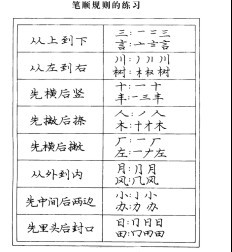 笔顺规则的练习
从上到下
三:一二三
言:亠言言
从左到右
川:丿川川
树:木权树
先横后竖
十:一十
丰:一三丰
先撇后捺
人:丿人
木:十才木
先横后撇
厂:一厂
左:一𠂇左
从外到内
月:冂月月
风:几风
先中间后两边
小:亅小
办:力办
先里头后封口
日:冂日日
田:冂田田